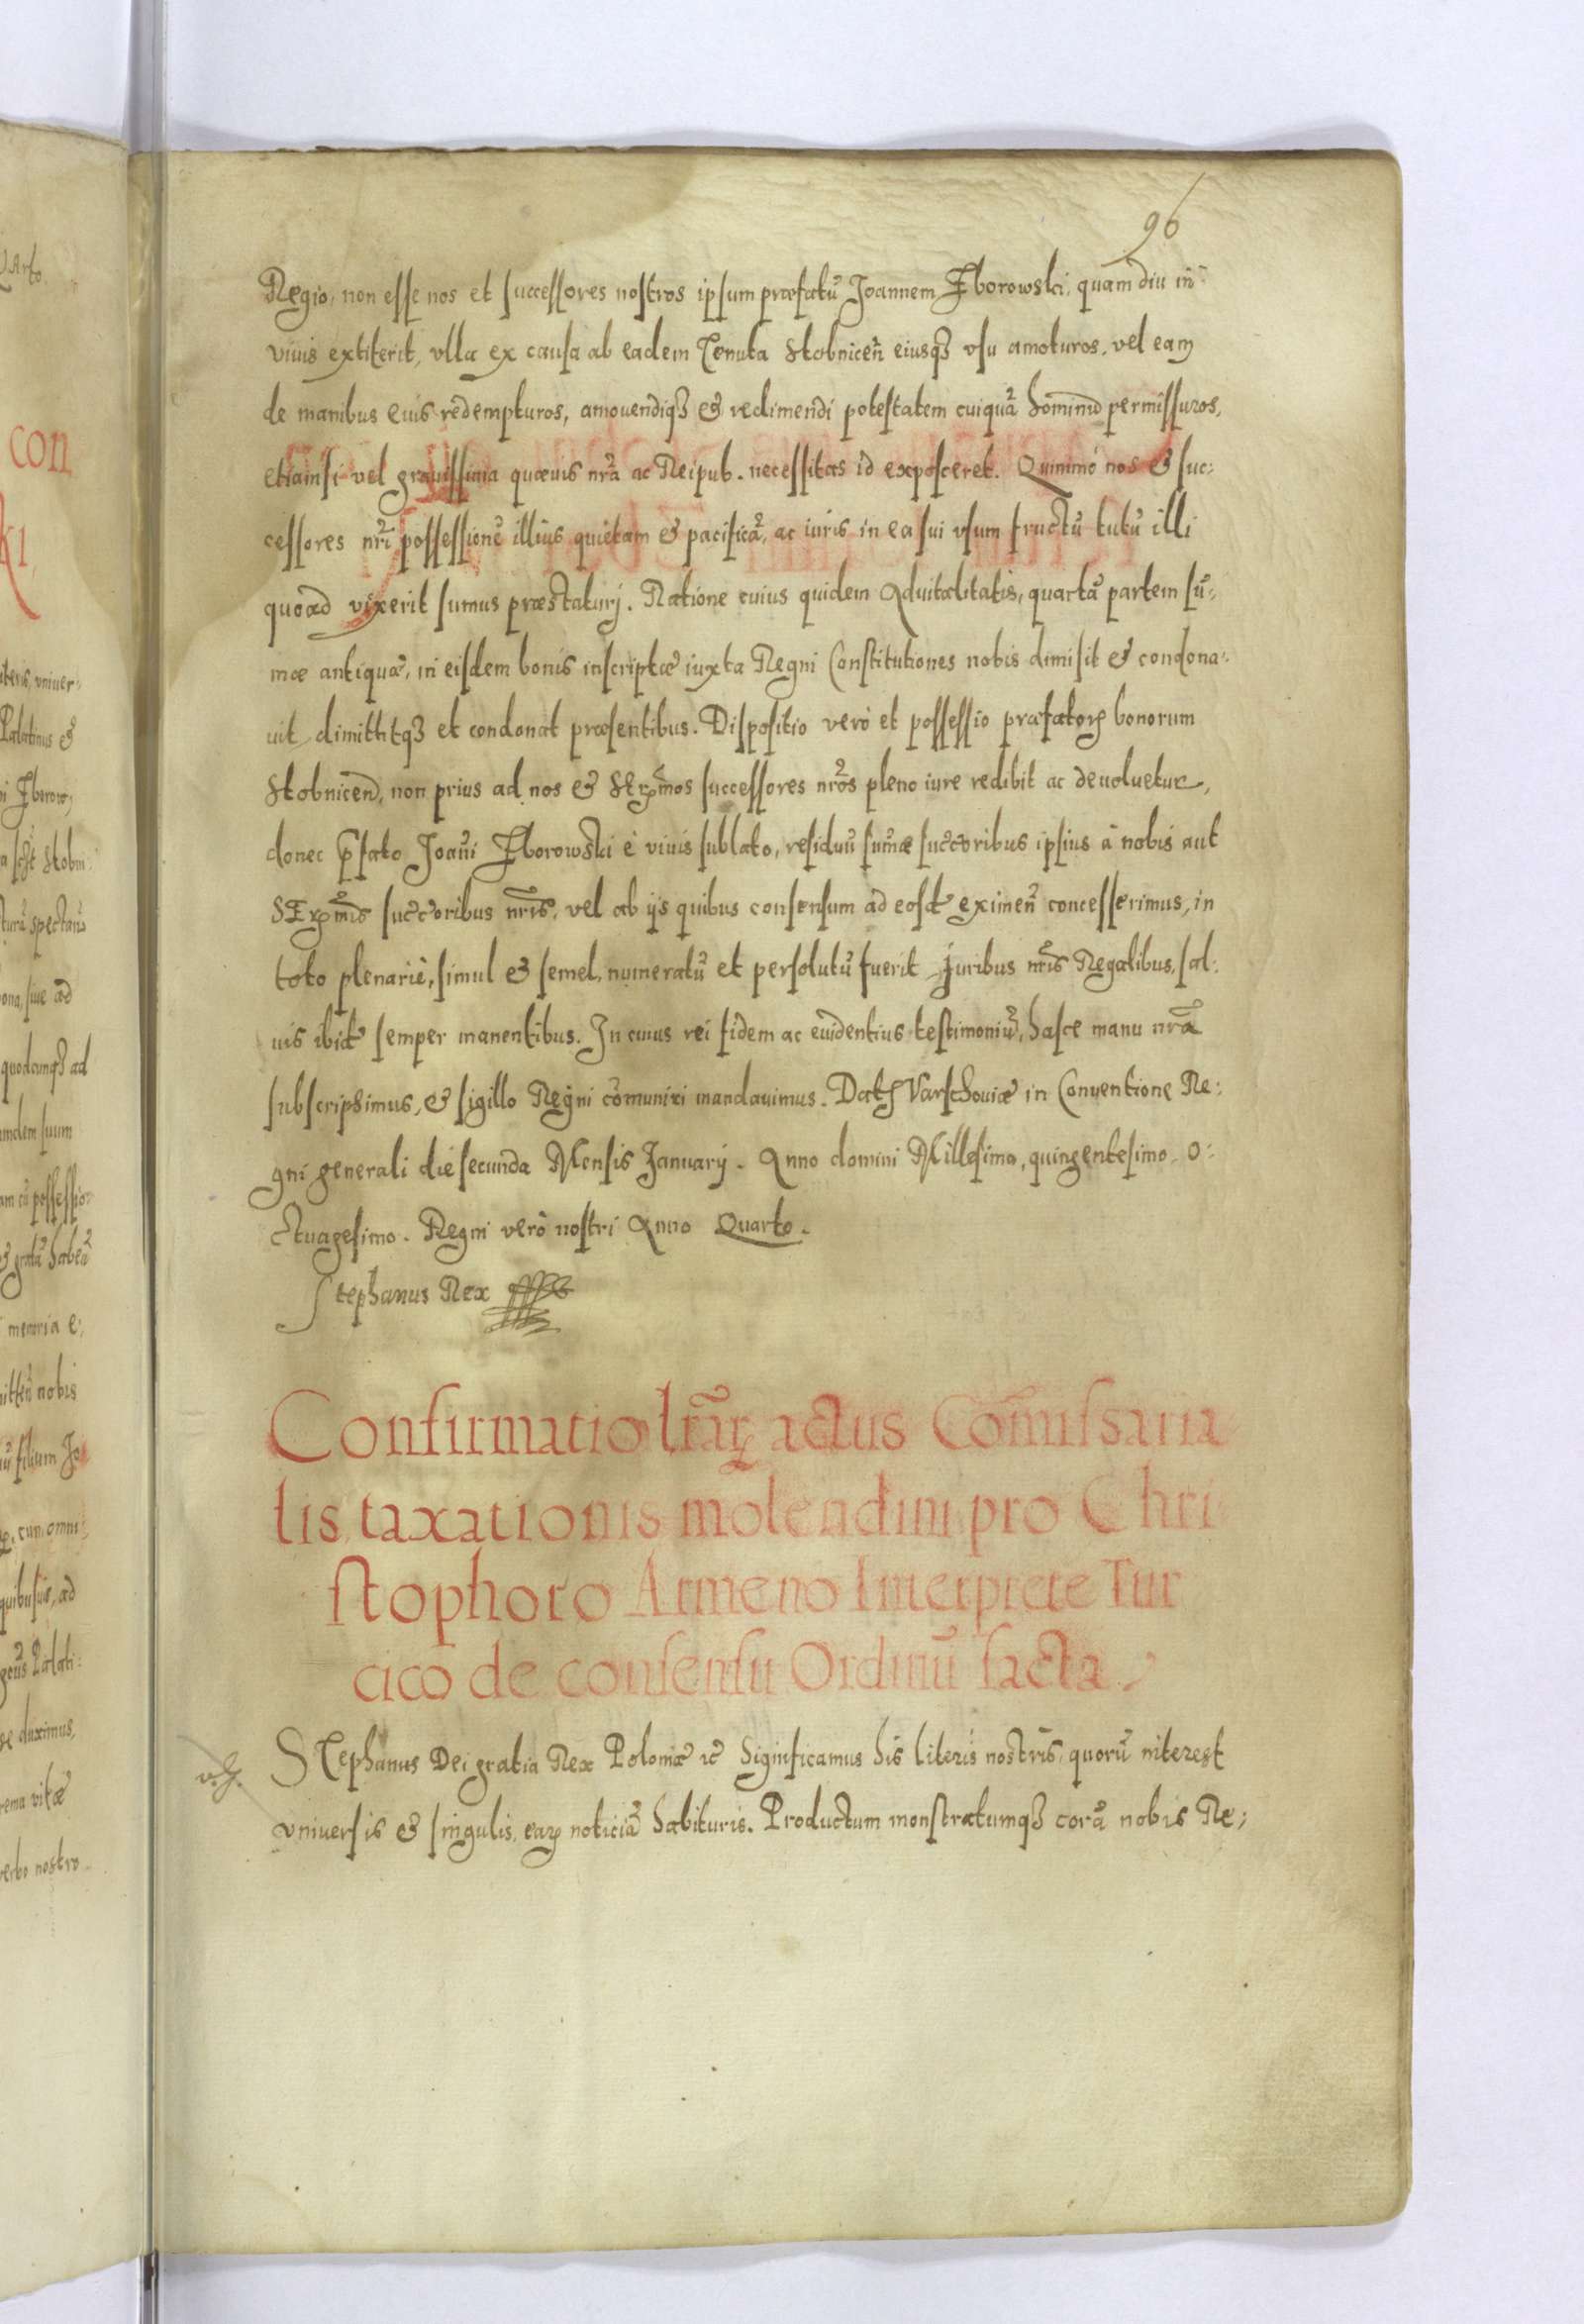 96
Regio, non esse nos et successores nostros ipsum præfatũ Joannem Zborowski, quam diu in
viuis extiterit, vlla ex causa ab eadem Tenuta Stobniceñ eiusqꝫ vsu amoturos, vel eam
de manibus euis redempturos, amouendiqꝫ & redimendi potestatem cuiquã hominũ permissuros,
etiamsi vel grauissima quæuis nrã ac Reipub. necessitas id exposceret. Quinimó nos & suc:
cessores nrĩ possessionẽ illius quietam & pacificã, ac iuris in ea sui vsum fructũ tutũ illi
quoad vixerit sumus præstaturj. Ratione cuius quidem Aduitalitatis, quartã partem sũ:
mæ antiquæ, in eisdem bonis inscriptæ iuxta Regni Constitutiones nobis dimisit & condona:
uit dimittitqꝫ et condonat præsentibus. Dispositio verò et possessio præfatoꝝ bonorum
Stobniceñ, non prius ad nos & Serꝫmos successores nrõs pleno iure redibit ac deuoluetur,
donec p̃fato Joañi Zborowski è viuis sublato, residuũ sum̃æ succ̃oribus ipsius à nobis aut
SErꝫmis succ̃oribus nrĩs, vel ab ijs quibus consensum ad eosd̃ eximeñ concesserimus, in
toto plenariè, simul & semel, numeratũ et persolutũ fuerit Juribus nrĩs Regalibus, sal:
uis ibid̃ semper manentibus. In cuius rei fidem ac euidentius testimoniũ, hasce manu nrã
subscripsimus, & sigillo Regni com̃uniri mandauimus. Datꝫ Varschouiæ in Conuentione Re:
gni generali die secunda Mensis Januarij. Anno domini Millesimo, quingentesimo o:
ctuagesimo. Regni verò nostri Anno Quarto.
Stephanus Rex
Confirmatio lrãꝝ actus Com̃issaria
lis, taxationis molendini pro Chri
stophoro Armeno Interprete Tur
cico de consensu Ordinũ facta.
STephanus Dei gratia Rex Poloniæ &c Significamus his literis nostris, quorũ interest
vniuersis & singulis, eaꝝ noticiã habituris. Productum monstratumqꝫ corã nobis Re;